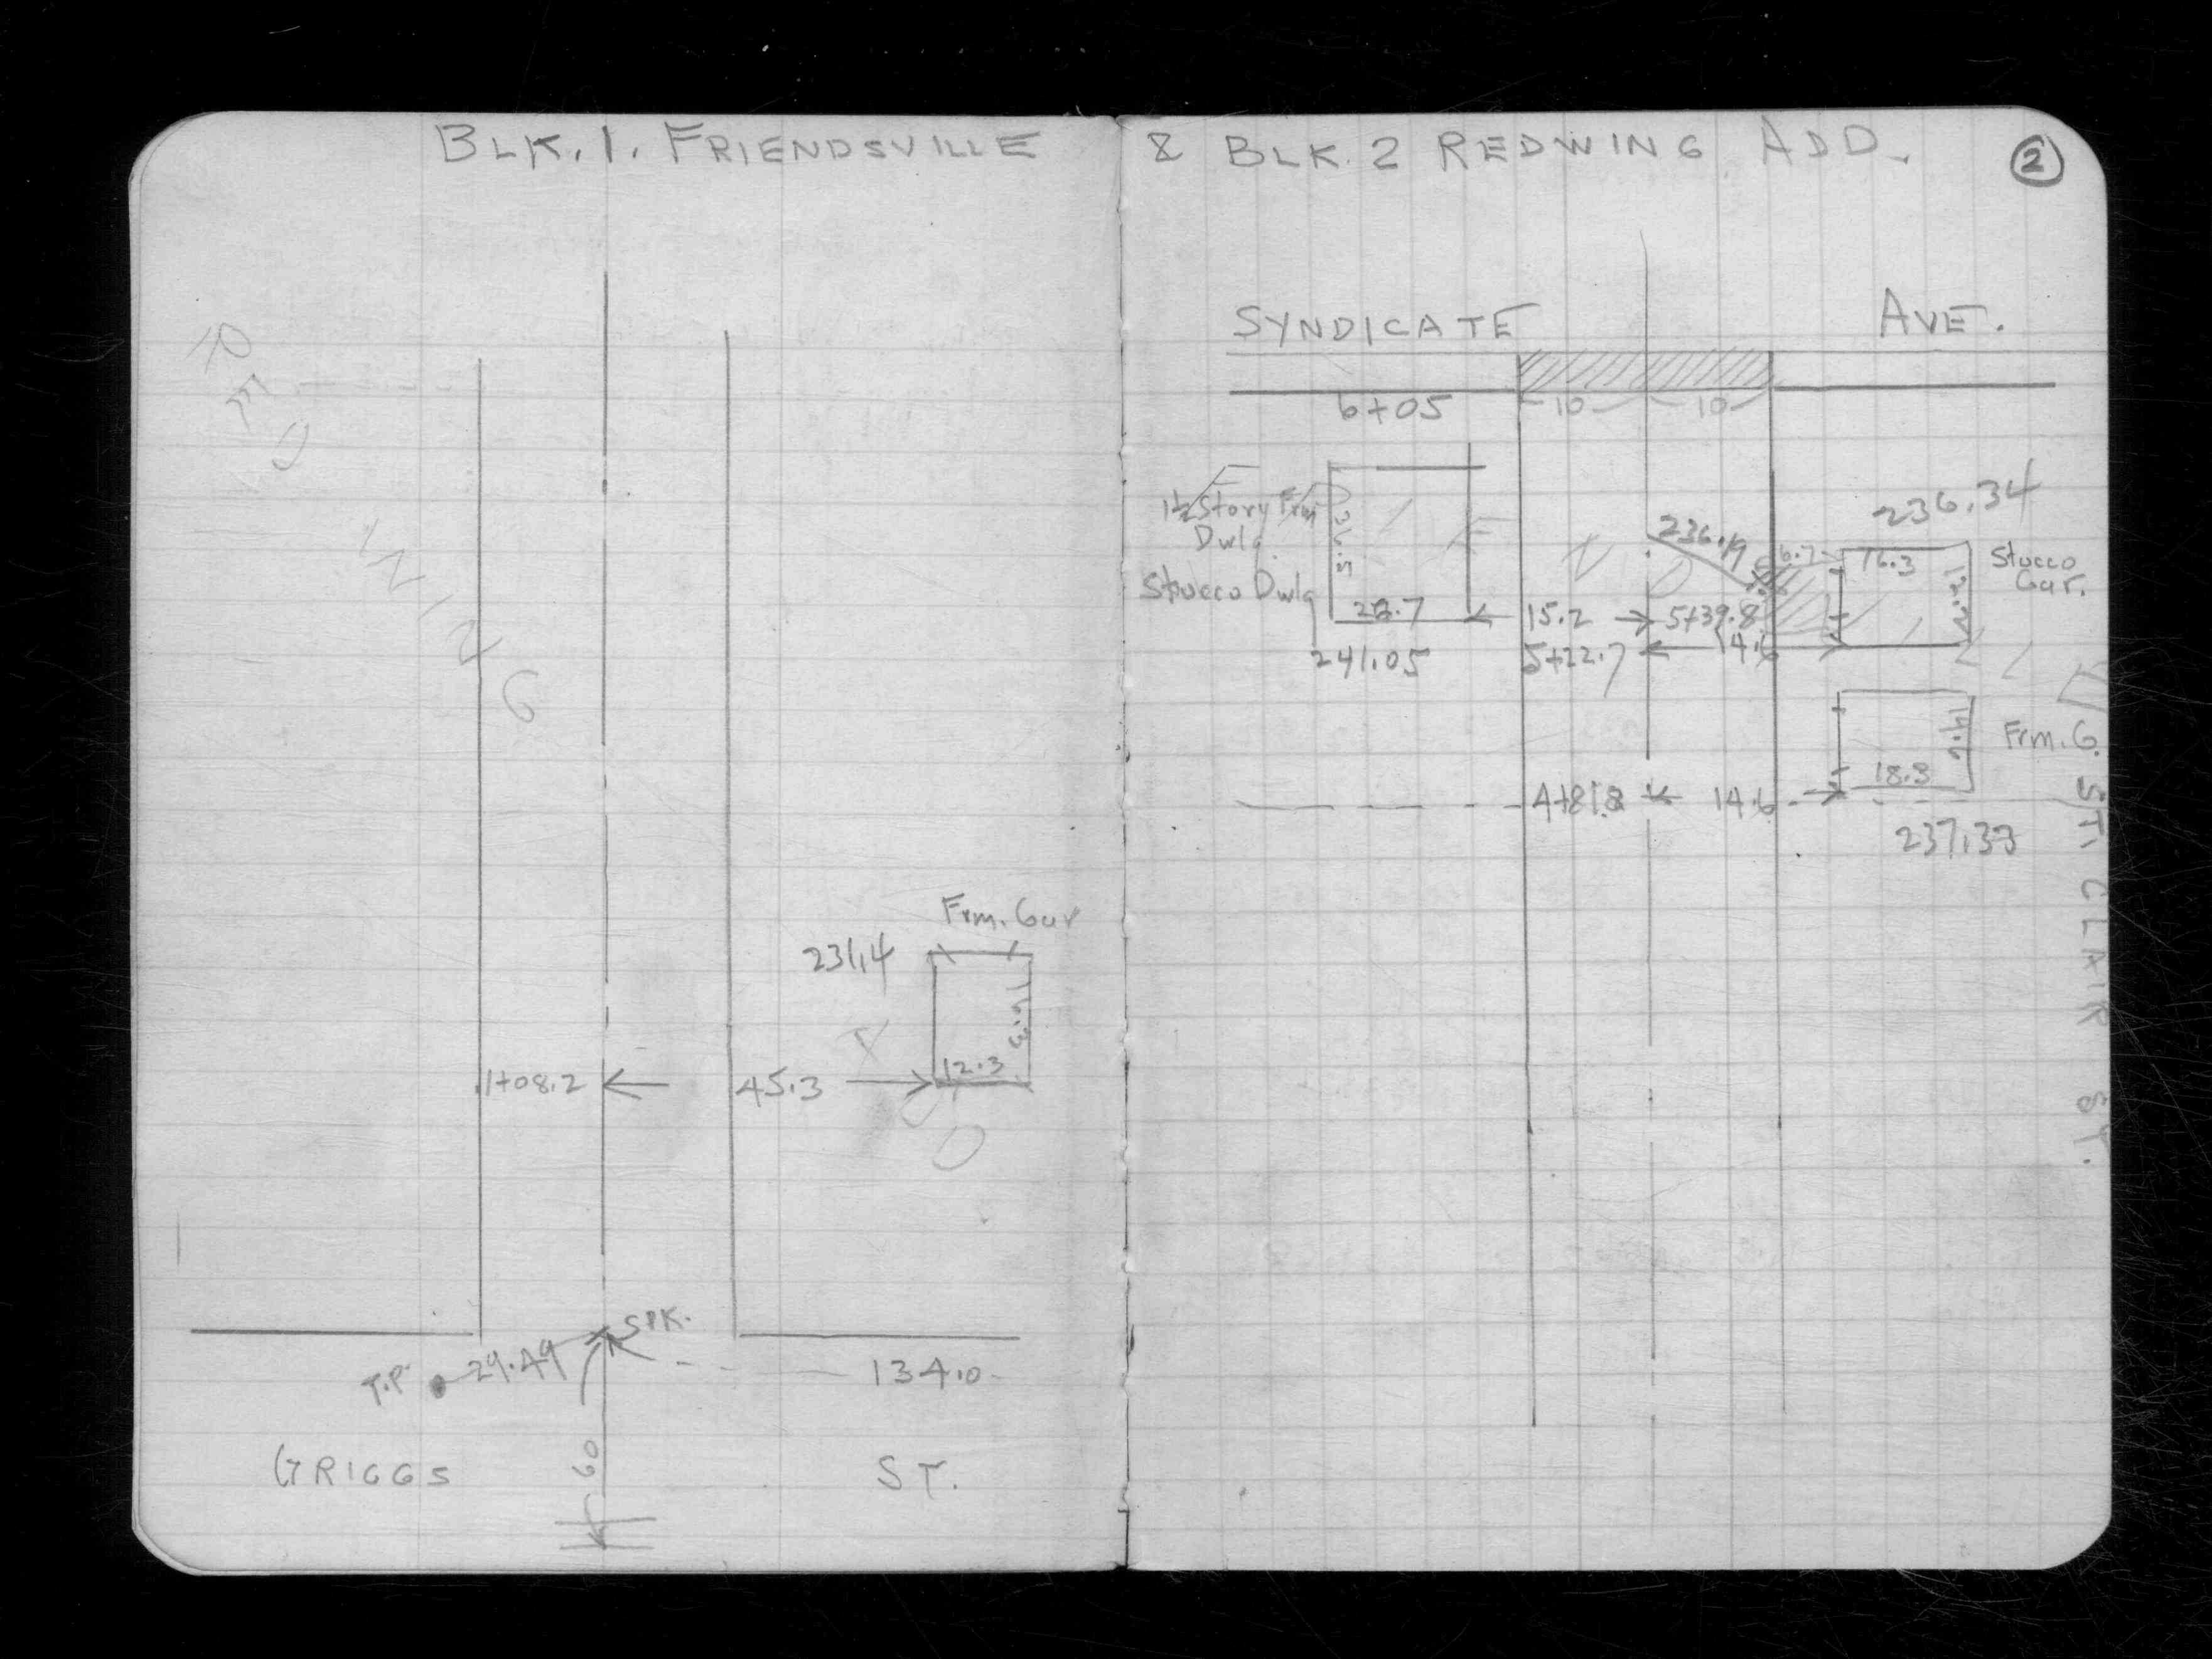 BLK. 1. FRIENDSVILLE & BLK. 2 REDWING ADD. 2
RED WING
Frm. Gar
231.4
12.3
1+08.2 45.3
SPK.
T.P. 29.49
134.0
GRIGGS ST.
60
SYNDICATE AVE.
6+05 10 10
1½ Story Frm
Dwlg.
Stucco Dwlg
36.5
241.05
236.19
6.7
236.34
16.3
Stucco
Gar.
15.2 5+39.8
5+22.7 14.6
Frm. G.
14.6
18.3
4+81.8 14.6
ST. CLAIR ST.